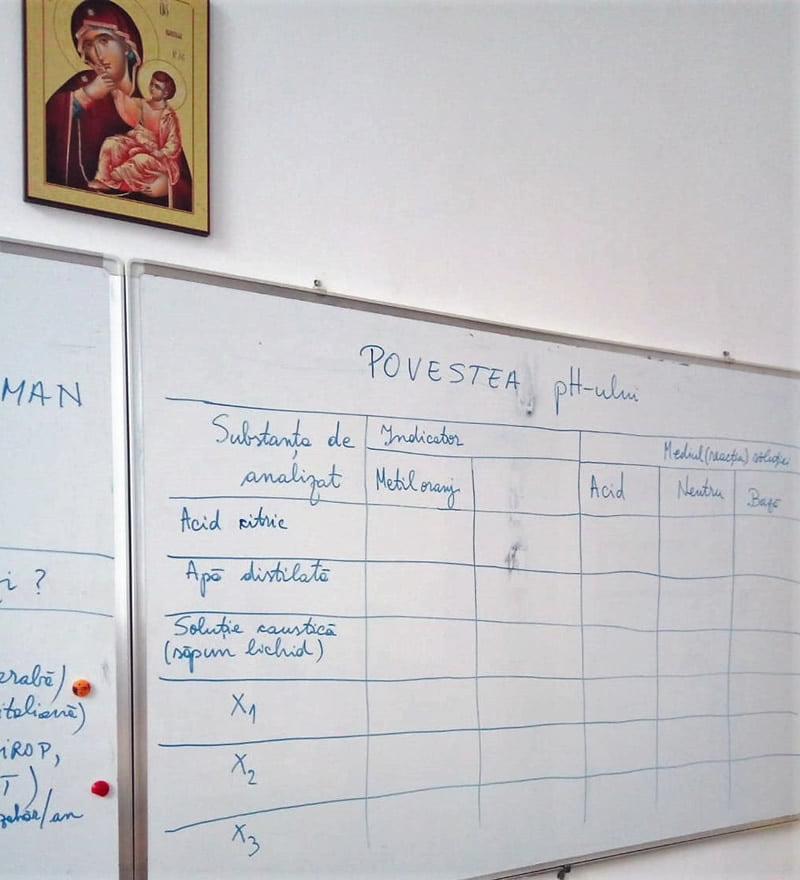 MAN
i ?
erabă)
italiană)
iROP,
T)
zahăr/an
POVESTEA pH-ului
Substanța de
analizat
Indicator
Mediul (reacția) soluției
Metiloranj
Acid
Neutru
Bază
Acid citric
Apă distilată
Soluție caustică
(săpun lichid)
X1
X2
X3